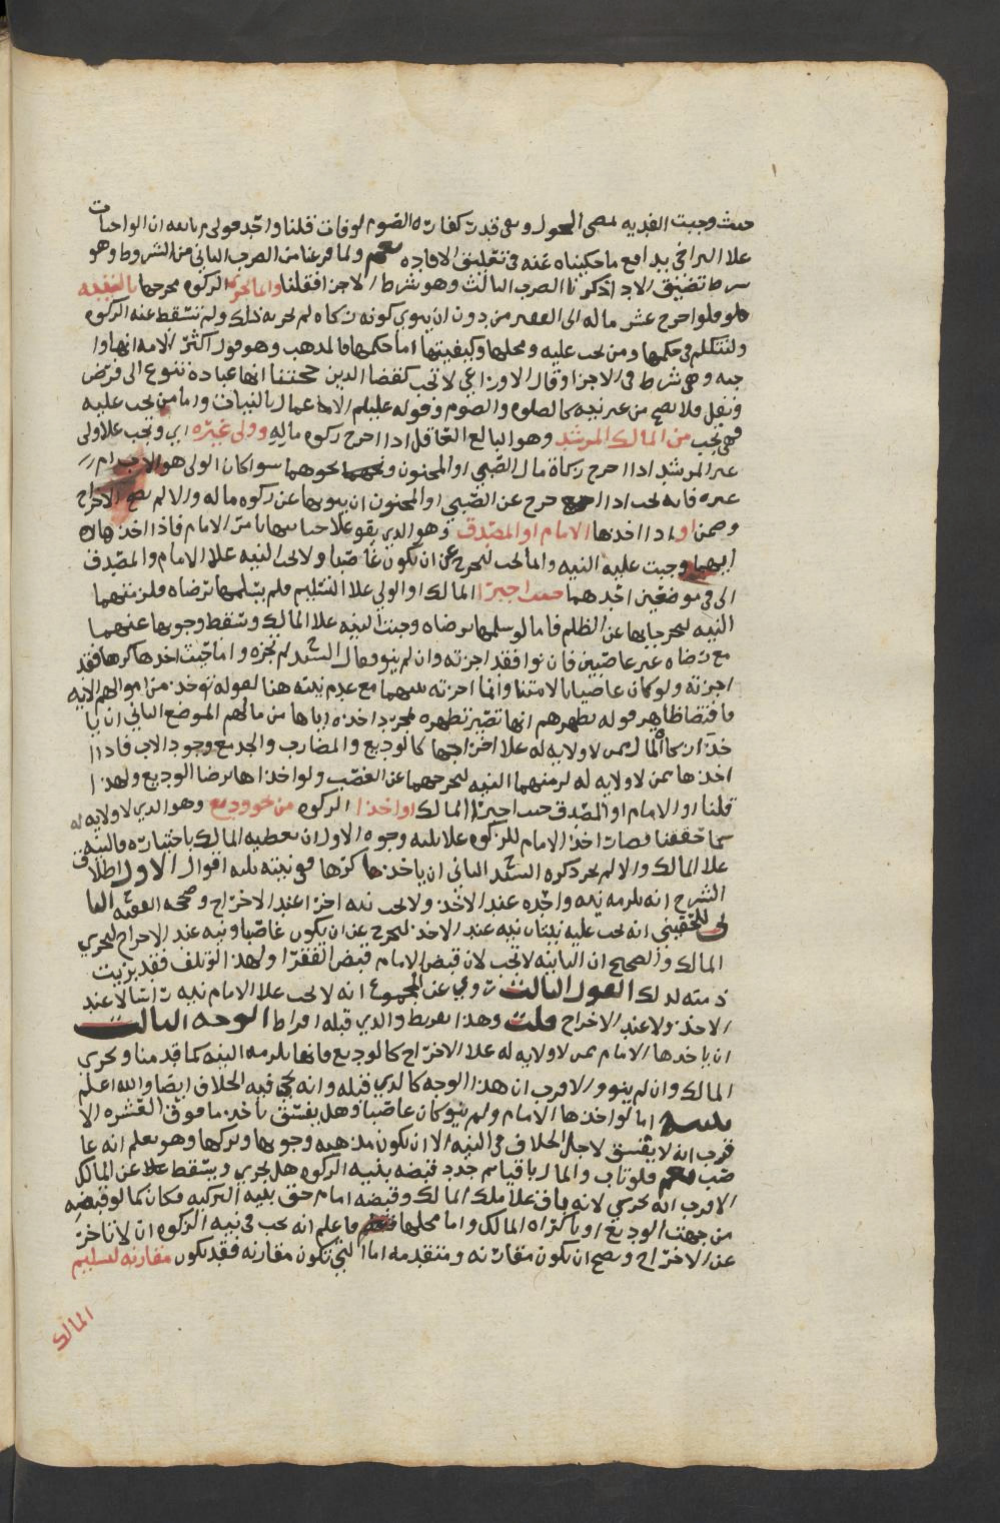 حيث وجبت الفديه لمضى الحول وبقى قدرت كفارة الصوم لوفات قلنا واحد قولى م بالله ان الواجبات
علا التراخي يدافع ما حكيناه عنه في تعليق الافاده نعم ولما فرغنا من الضرب الثاني من الشروط وهو
شرط تضييق الادا ذكرنا الضرب الثالث وهو شرط الاجزا فقلنا وانما تجزي الزكوه مخرجها بالنيه
فلو اخرج عشر ماله الى الفقير من دون ان ينوي كونه زكاه لم تجزه بذلك ولم تسقط عنه الزكوه
ولنتكلم في حكمها ومن تجب عليه ومحلها وكيفيتها اما حكمها فالمذهب وهو قول اكثر الامه انها وا
جبه وهي شرط في الاجزا وقال الاوزاعي لا تجب كقضا الدين حجتنا انها عباده تتنوع الى فرض
ونفل فلا تصح من غير نيه كالصلوه والصوم وقوله عليلم الاعمال بالنيات واما من تجب عليه
فهي تجب من المالك المرشد وهو البالغ العاقل اذا اخرج زكوه ماله وولى غيره اي وتجب علا ولى
غير المرشد اذا اخرج زكاة مال الصبي او المجنون ونحوهما سوا كان الولي هو الاب ام
غيره فانه يجب اذا اخرج عن الصبي او المجنون ان ينويها عن زكوه ماله والا لم يصح الاخراج
وضمن او اذا اخذها الامام او المصدق وهو الذي يقوم علا جبايتها بامر الامام فاذا اخذها
ايهما وجبت عليه النيه وانما تجب ليخرج عن ان يكون غاصبا ولا تجب النيه علا الامام والمصدق
الى في موضعين احدهما حيث اجبرا المالك او الولي علا التسليم فلم يسلمها برضاه فلزمتهما
النيه ليخرجا بها عن الظلم فاما لو سلمها برضاه وجبت النيه علا المالك وسقط وجوبها عنهما
مع رضاه غير غاصبين فان نوا فقد اجزته وان لم ينو فقال السيد لم تجزه واما حيث اخذها كرها فقد
اجزته ولو كان عاصيا بالامتناع وانما اجزته نيتهما مع عدم نيته هنا لقوله تعالى خذ من اموالهم الايه
فاقتضا ظاهر قوله تطهرهم انها تصير تطهره بمجرد اخذه اياها من مالهم الموضع الثاني ان يا
خذان زكاة المال ممن لا ولايه له علا اخراجها كالوديع والمضارب والجد مع وجود الاب فاذا
اخذها ممن لا ولايه له لزمتهما النيه ليخرجهما عن الغصب ولو اخذاها برضا الوديع ولهذا
قلنا او الامام او المصدق حيث اجبرا المالك او اخذا الزكوه من نحو وديع وهو الذي لا ولايه له
كما حققنا فصار اخذ الامام للزكوه علا ثلثه وجوه الاول ان يعطيه المالك باختياره فالنيه
علا المالك والا لم يجز ذكره السيد الثاني ان ياخذها كرها ففي نيته ثلثه اقوال الاول اطلاق
الشرح انه يلزمه نيه واحده عند الاخذ ولا تجب نيه اخرا عند الاخراج وصححه الفقيه الثا
ني للحقيني انه تجب عليه نيتان نيه عند الاخذ ليخرج عن ان يكون غاصبا ونيه عند الاخراج لتجزي
المالك والصحيح ان الثانيه لا تجب لان قبض الامام قبض الفقرا ولهذا لو تلف فقد بريت
ذمته لذلك القول الثالث روي عن المجموع انه لا تجب علا الامام نيه راسا لا عند
الاخذ ولا عند الاخراج قلت وهذا تفريط والذي قبله افراط الوجه الثالث
ان ياخذها الامام ممن لا ولايه له علا الاخراج كالوديع فانها تلزمه النيه كما قدمنا وتجزى
المالك وان لم ينوو والاقرب ان هذا الوجه كالذي قبله وانه يجي فيه الخلاف ايضا والله اعلم
تنبيه اما لو اخذها الامام ولم ينو كان غاصبا وهل يفسق باخذ ما فوق العشره الا
قرب انه لا يفسق لاجل الخلاف في النيه الا ان يكون مذهبه وجوبها وتركها وهو يعلم انه غا
صب نعم فلو تاب والمال باق ثم جدد قبضه بنيه الزكوه هل يجزي ويسقط عن المالك
الاقرب انه يجزي لانه باق علا ملك المالك وقبضه امام حق بنيه التزكيه فكان كما لو قبضه
من جهت الوديع او باكراه المالك واما محلها فاعلم انه يجب في نيه الزكوه ان لا تاخر
عن الاخراج ويصح ان يكون مقارنه ومتقدمه اما التي تكون مقارنه فقد يكون مقارنه لتسليم
المالك